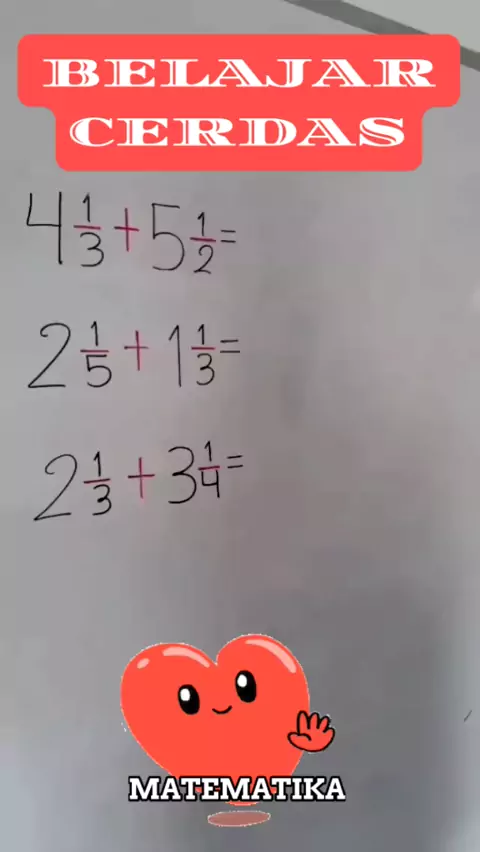 BELAJAR
CERDAS
4 1/3 + 5 1/2 =
2 1/5 + 1 1/3 =
2 1/3 + 3 1/4 =
MATEMATIKA